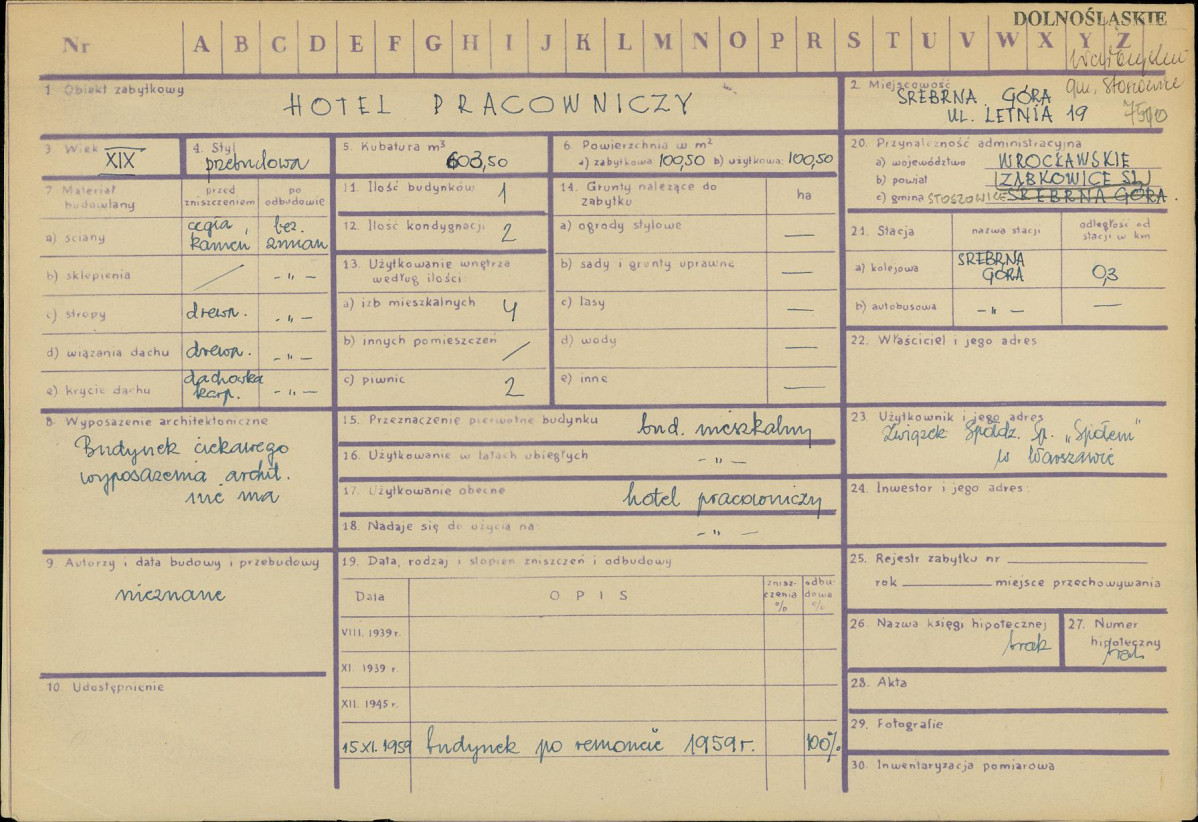 DOLNOŚLĄSKIE
Nr A B C D E F G H I J K L M N O P R S T U V W X Y Z
gm. Stoszowice
1. Obiekt zabytkowy
HOTEL PRACOWNICZY
2. Miejscowość
SREBRNA GÓRA
UL. LETNIA 19
3. Wiek
XIX
4. Styl
przebudowa
5. Kubatura m³
603,50
6. Powierzchnia w m²
a) zabytkowa 100,50 b) użytkowa: 100,50
7. Materiał budowlany
przed zniszczeniem
po odbudowie
a) ściany cegła, kamień bez zmian
b) sklepienia / - „ -
c) stropy drewn. - „ -
d) wiązania dachu drewn. - „ -
e) krycie dachu dachówka karp. - „ -
8. Wyposażenie architektoniczne
Budynek ciekawego
wyposażenia archit.
nie ma
9. Autorzy i data budowy i przebudowy
nieznane
10. Udostępnienie
11. Ilość budynków 1
12. Ilość kondygnacji 2
13. Użytkowanie wnętrza
według ilości:
a) izb mieszkalnych 4
b) innych pomieszczeń /
c) piwnic 2
14. Grunty należące do zabytku
ha
a) ogrody stylowe —
b) sady i grunty uprawne —
c) lasy —
d) wody —
e) inne —
15. Przeznaczenie pierwotne budynku bud. mieszkalny
16. Użytkowanie w latach ubiegłych - „ -
17. Użytkowanie obecne hotel pracowniczy
18. Nadaje się do użycia na: - „ -
19. Data, rodzaj i stopień zniszczeń i odbudowy
Data
OPIS
zniszczenia %
odbudowa %
VIII. 1939 r.
XI. 1939 r.
XII. 1945 r.
15 XI. 1959 budynek po remoncie 1959 r. 100%
20. Przynależność administracyjna
a) województwo WROCŁAWSKIE
b) powiat ZĄBKOWICE ŚL
c) gmina STOSZOWICE SREBRNA GÓRA.
21. Stacja
nazwa stacji
odległość od stacji w km
a) kolejowa SREBRNA GÓRA 0,3
b) autobusowa - „ - —
22. Właściciel i jego adres
23. Użytkownik i jego adres
Związek Spółdz. Sp. „Społem"
w Warszawie
24. Inwestor i jego adres:
25. Rejestr zabytku nr
rok miejsce przechowywania
26. Nazwa księgi hipotecznej
brak
27. Numer hipoteczny
brak
28. Akta
29. Fotografie
30. Inwentaryzacja pomiarowa